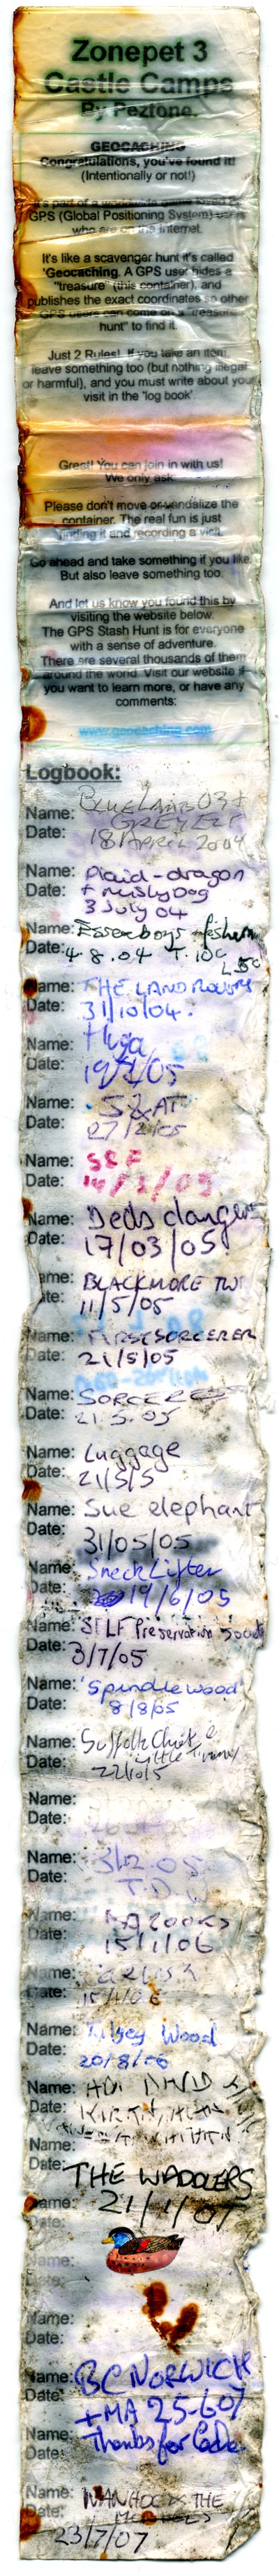 Zonepet 3
Castle Camps
By Peztone.
GEOCACHING
Congratulations, you've found it!
(Intentionally or not!)
It's part of a worldwide game
GPS (Global Positioning System) users
who are on the Internet.
It's like a scavenger hunt it's called
'Geocaching. A GPS user hides a
"treasure" (this container), and
publishes the exact coordinates so other
GPS users can come on a "treasure
hunt" to find it.
Just 2 Rules! If you take an item,
leave something too (but nothing illegal
or harmful), and you must write about your
visit in the "log book'.
Great! You can join in with us!
We only ask:
Please don't move or vandalize the
container. The real fun is just
finding it and recording a visit.
Go ahead and take something if you like.
But also leave something too.
And let us know you found this by
visiting the website below.
The GPS Stash Hunt is for everyone
with a sense of adventure.
There are several thousands of them
around the world. Visit our website if
you want to learn more, or have any
comments:
www.geocaching.com
Logbook:
Name: BLUELAMB03 +
GREYELF
Date: 18 APRIL 2004
Name: Plaid-dragon
Date: + muslyDog
3 July 04
Name: Essexboys
Date: 4.8.04 T.10C
Name: THE LAND ROVERS
Date: 31/10/04.
Name:
Date: 19/2/05
Name: S&AT
Date: 27/2/05
Name: SEF
Date: 14/3/05
Name: Deds danger
Date: 17/03/05
Name: BLACKMORE TWI
Date: 11/5/05
Name: FIRSTSORCERER
Date: 21/5/05
Name: SORCERESS
Date: 21.5.05
Name: Luggage
Date: 21/5/5
Name: Sue elephant
Date: 31/05/05
Name: SneckLifter
Date: 19/6/05
Name: SELF Preservation Society
Date: 3/7/05
Name: 'Spindlewood'
Date: 8/8/05
Name: Suffolk Chief &
Little Timmy
Date: 22/10/5
Name:
Date:
Name: 3/12.05
Date: T.D.
Name:
Date: 15/1/06
Name:
Date:
Name: Wood
Date: 20/8/06
Name:
Date:
Name:
Date:
THE WADDLERS
Name: 21/1/07
Date:
Name:
Date:
Name:
Date:
Name: BC NORWICH
Date: +MA 25-6-07
Name: Thanks for Cache
Date:
Name: IVANHOE & THE
Date:
23/7/07